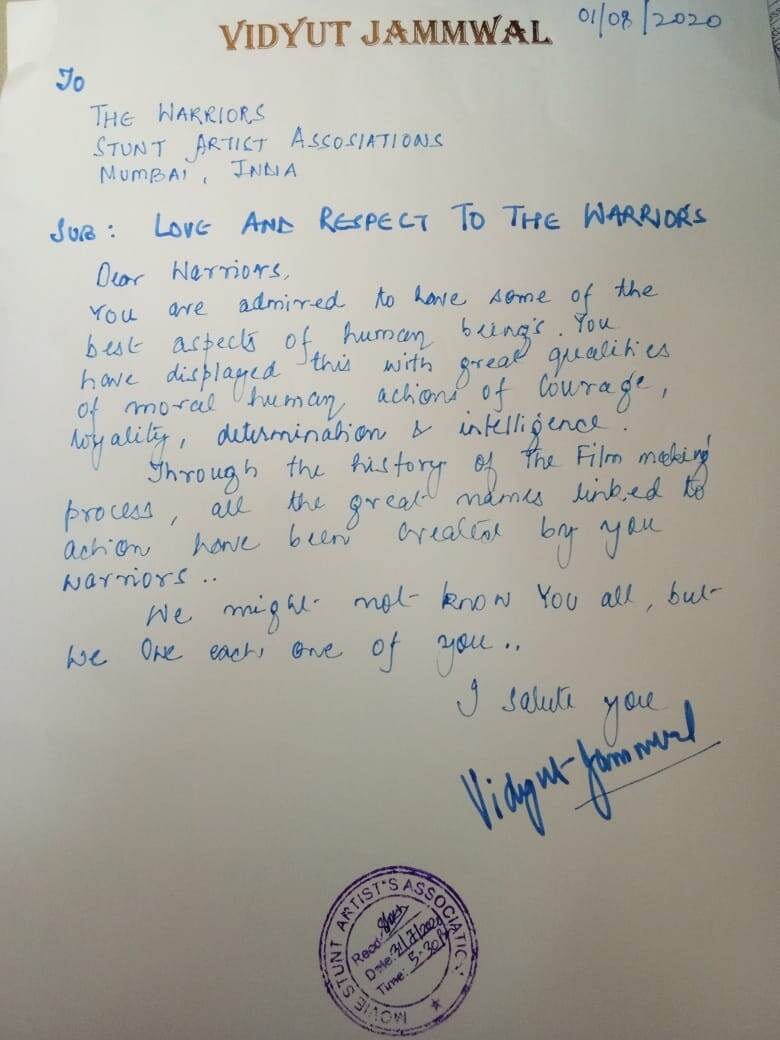 VIDYUT JAMMWAL
01/08/2020
To
THE WARRIORS
STUNT ARTIST ASSOSIATIONS
MUMBAI, INDIA
SUB: LOVE AND RESPECT TO THE WARRIORS
Dear Warriors,
You are admired to have some of the
best aspects of human being's. You
have displayed this with great qualities
of moral human actions of courage,
loyality, determination & intelligence.
Through the history of The Film making
process, all the great names linked to
action have been created by you
warriors..
We might not know You all, but
we owe each one of you..
I salute you
Vidyut Jammwal
MOVIE STUNT ARTIST'S ASSOCIATION
Read:
Date: 31/7/2020
Time: 5:30